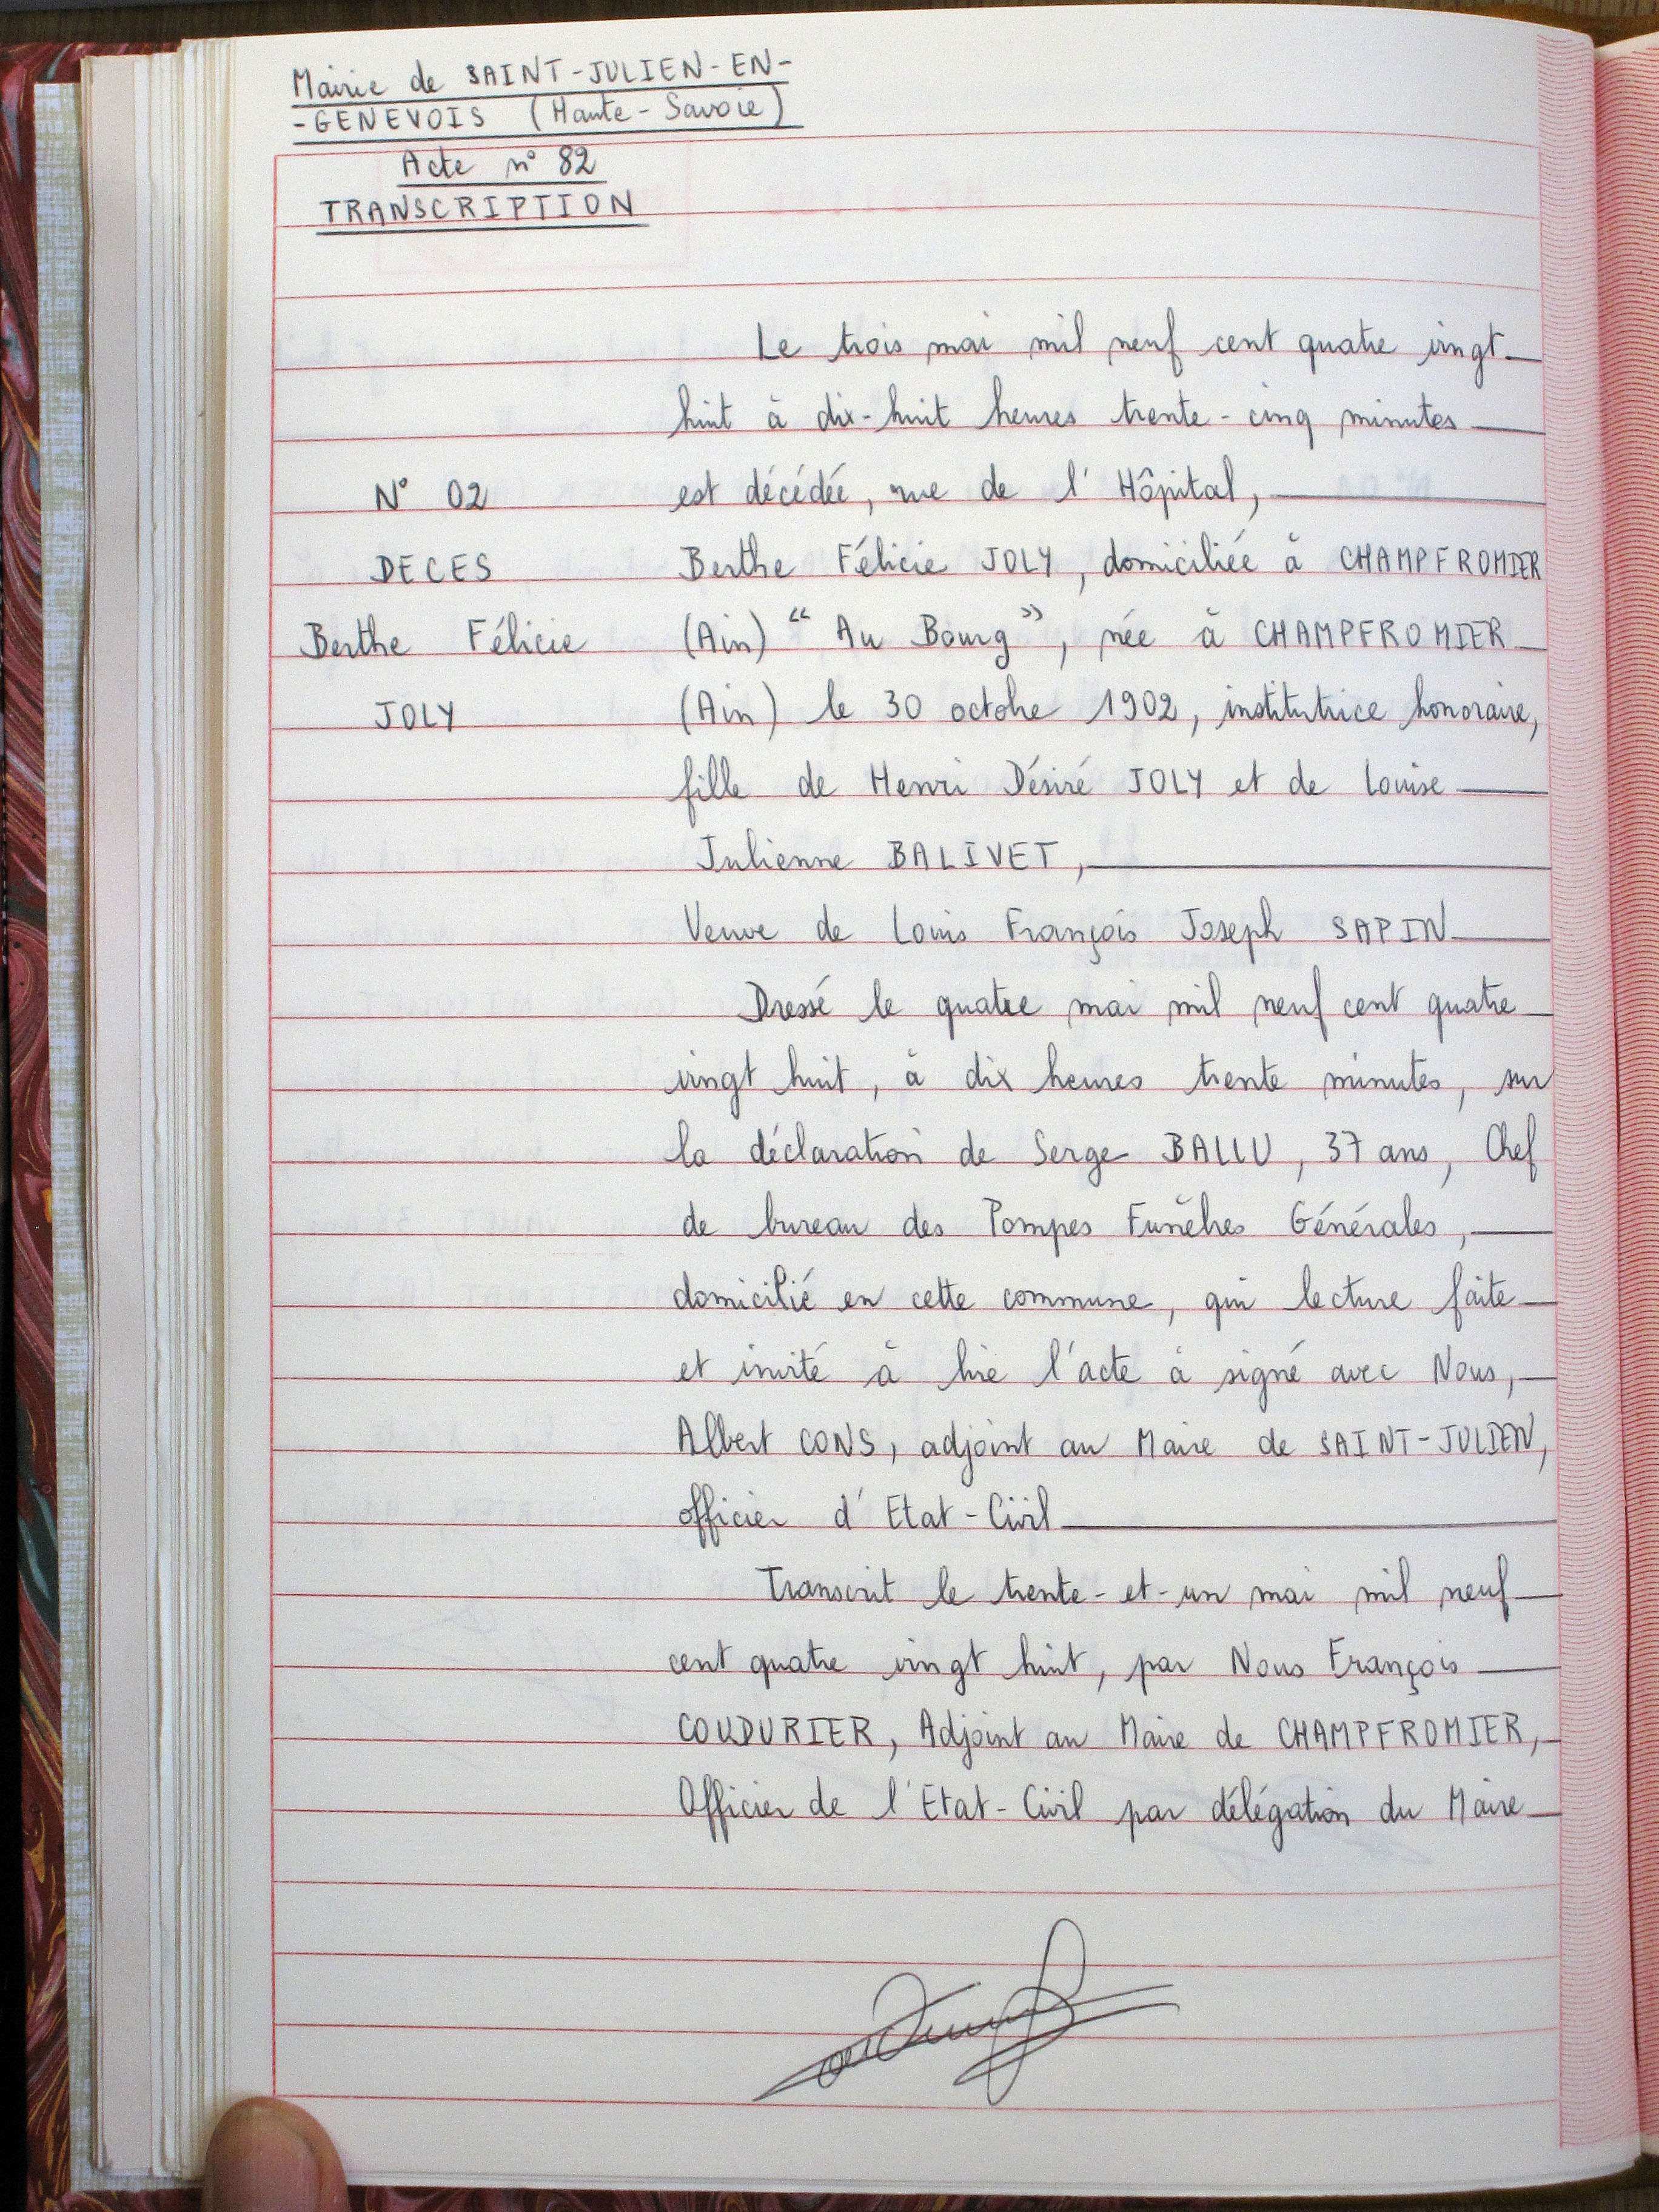 Mairie de SAINT-JULIEN-EN-
-GENEVOIS (Haute-Savoie)
Acte n° 82
TRANSCRIPTION
Le trois mai mil neuf cent quatre vingt
huit à dix-huit heures trente-cinq minutes
N° 02
est décédée, rue de l'Hôpital,
DECES
Berthe Félicie JOLY, domiciliée à CHAMPFROMIER
Berthe Félicie
(Ain) "Au Bourg", née à CHAMPFROMIER
JOLY
(Ain) le 30 octobre 1902, institutrice honoraire,
fille de Henri Désiré JOLY et de Louise
Julienne BALIVET,
Veuve de Louis François Joseph SAPIN
Dressé le quatre mai mil neuf cent quatre
vingt huit, à dix heures trente minutes, sur
la déclaration de Serge BALLU, 37 ans, Chef
de bureau des Pompes Funèbres Générales,
domicilié en cette commune, qui lecture faite
et invité à lire l'acte à signé avec Nous,
Albert CONS, adjoint au Maire de SAINT-JULIEN,
officier d'Etat-Civil
Transcrit le trente-et-un mai mil neuf
cent quatre vingt huit, par Nous François
COUDURIER, Adjoint au Maire de CHAMPFROMIER,
Officier de l'Etat-Civil par délégation du Maire